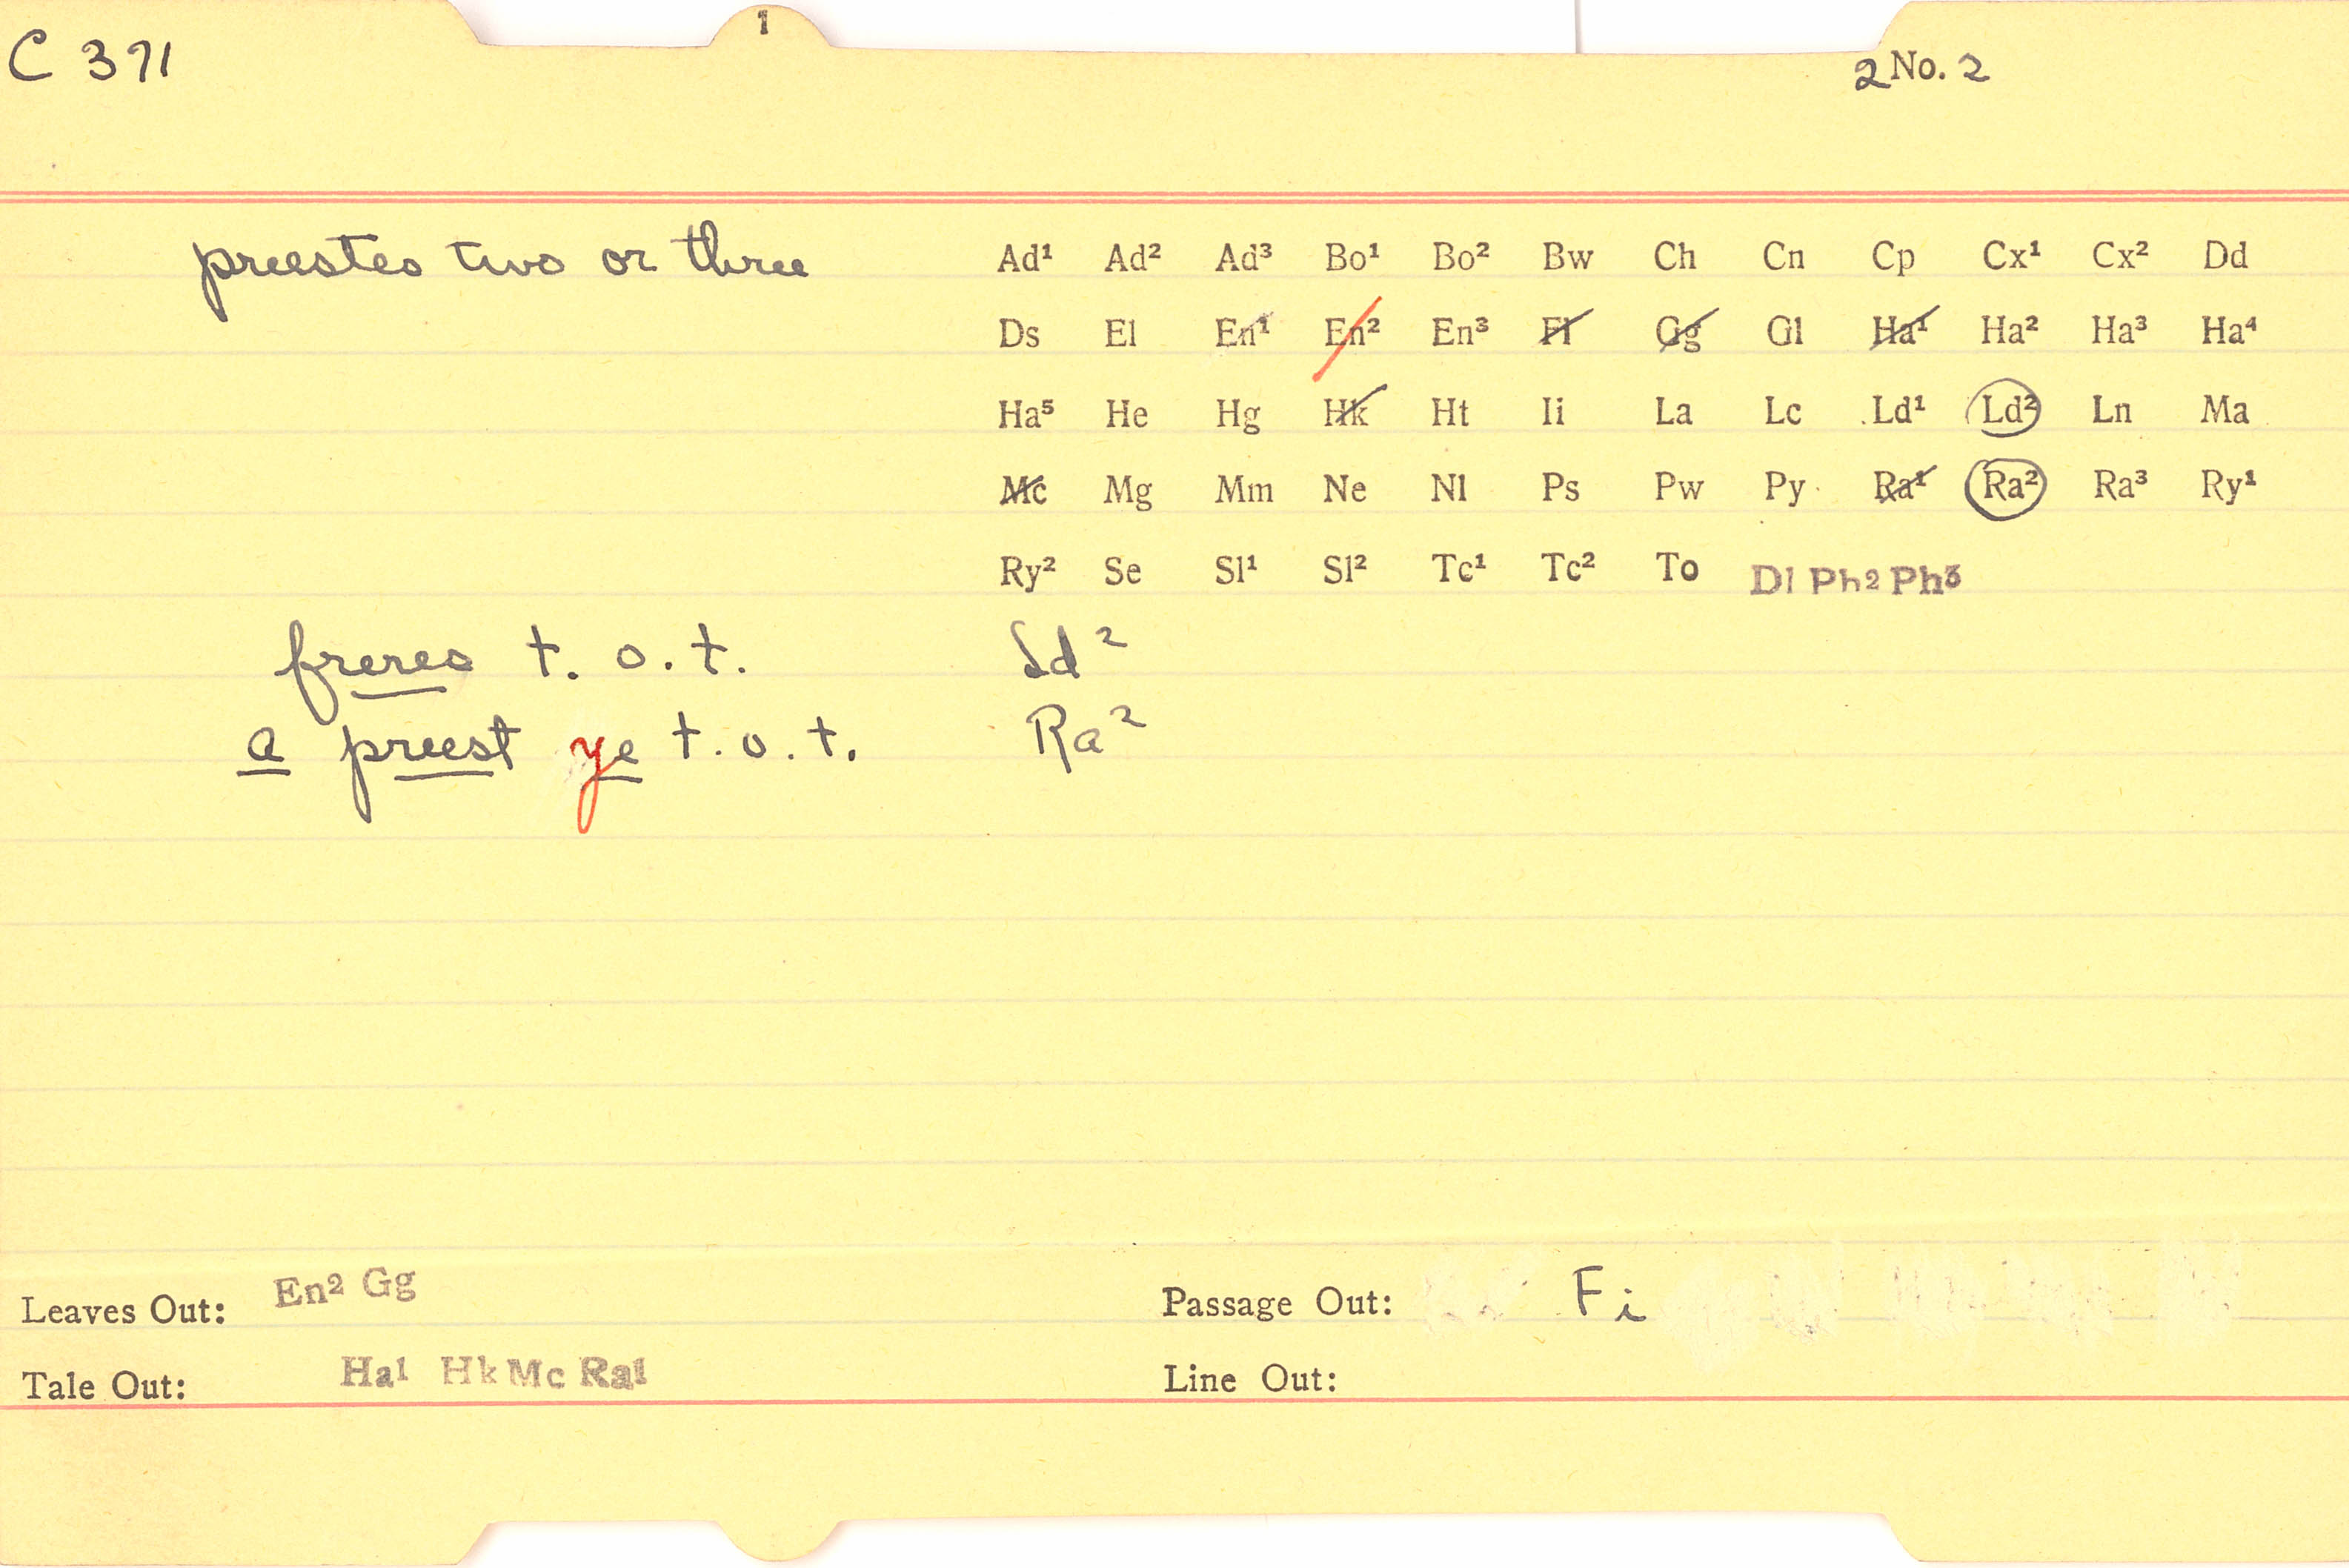 1
C 371
2 No. 2
preestes two or three
Ad¹ Ad² Ad³ Bo¹ Bo² Bw Ch Cn Cp Cx¹ Cx² Dd
Ds El En¹ En² En³ Fi Gg Gl Ha¹ Ha² Ha³ Ha⁴
Ha⁵ He Hg Hk Ht Ii La Lc Ld¹ Ld² Ln Ma
Mc Mg Mm Ne Nl Ps Pw Py Ra¹ Ra² Ra³ Ry¹
Ry² Se Sl¹ Sl² Tc¹ Tc² To Dl Ph2 Ph3
freres t. o. t. Ld²
a preest ye t. o. t. Ra²
Leaves Out: En² Gg Passage Out: Fi
Tale Out: Ha1 Hk Mc Ra1 Line Out: